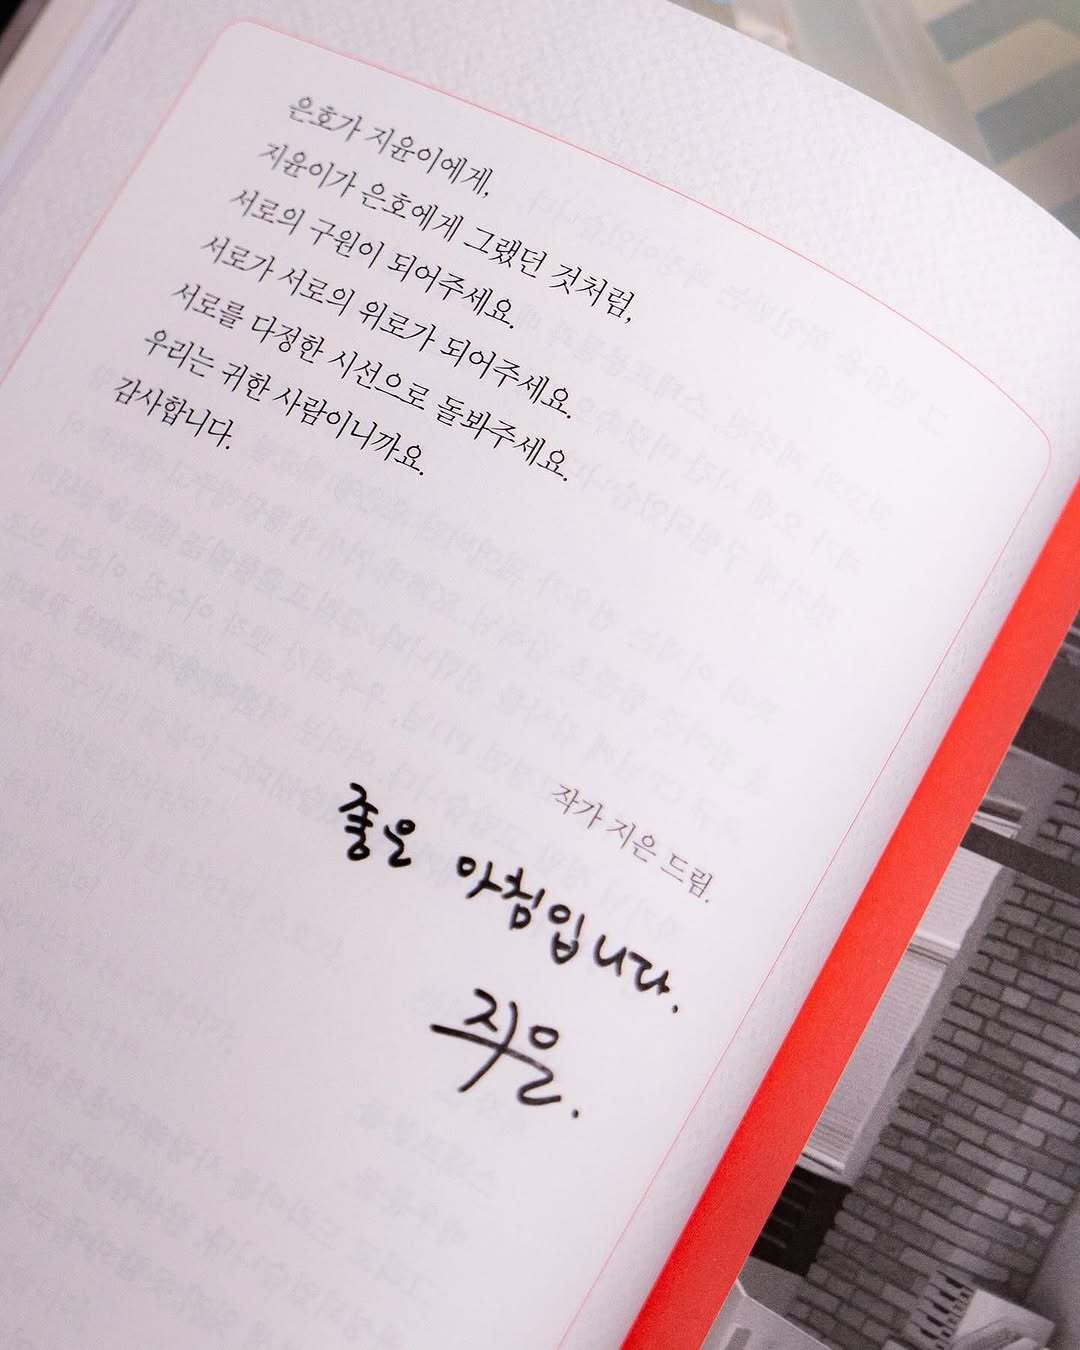 은호가 지윤이에게,
지윤이가 은호에게 그랬던 것처럼,
서로의 구원이 되어주세요.
서로가 서로의 위로가 되어주세요.
서로를 다정한 시선으로 돌봐주세요.
우리는 귀한 사람이니까요.
감사합니다.
작가 지은 드림.
좋은 아침입니다.
지은.